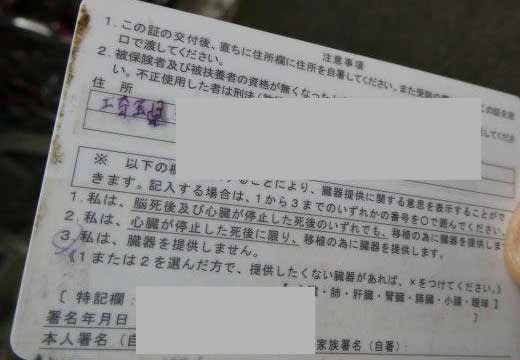 注意事項
1.この証の交付後、直ちに住所欄に住所を自署してください。また
口で渡してください。
2.被保険者及び被扶養者の資格が無くなった
い。不正使用した者は刑法
住所
※ 以下の欄 することにより、臓器提供に関する意思を表示することがで
きます。記入する場合は、1から3までのいずれかの番号を〇で囲んでください。
1.私は、脳死後及び心臓が停止した死後のいずれでも、移植の為に臓器を提供しま
2.私は、心臓が停止した死後に限り、移植の為に臓器を提供します。
3.私は、臓器を提供しません。
《1または2を選んだ方で、提供したくない臓器があれば、×をつけてください。》
・肺・肝臓・腎臓・膵臓・小腸・眼球】
[特記欄: ]
署名年月日
本人署名(自 家族署名(自署):